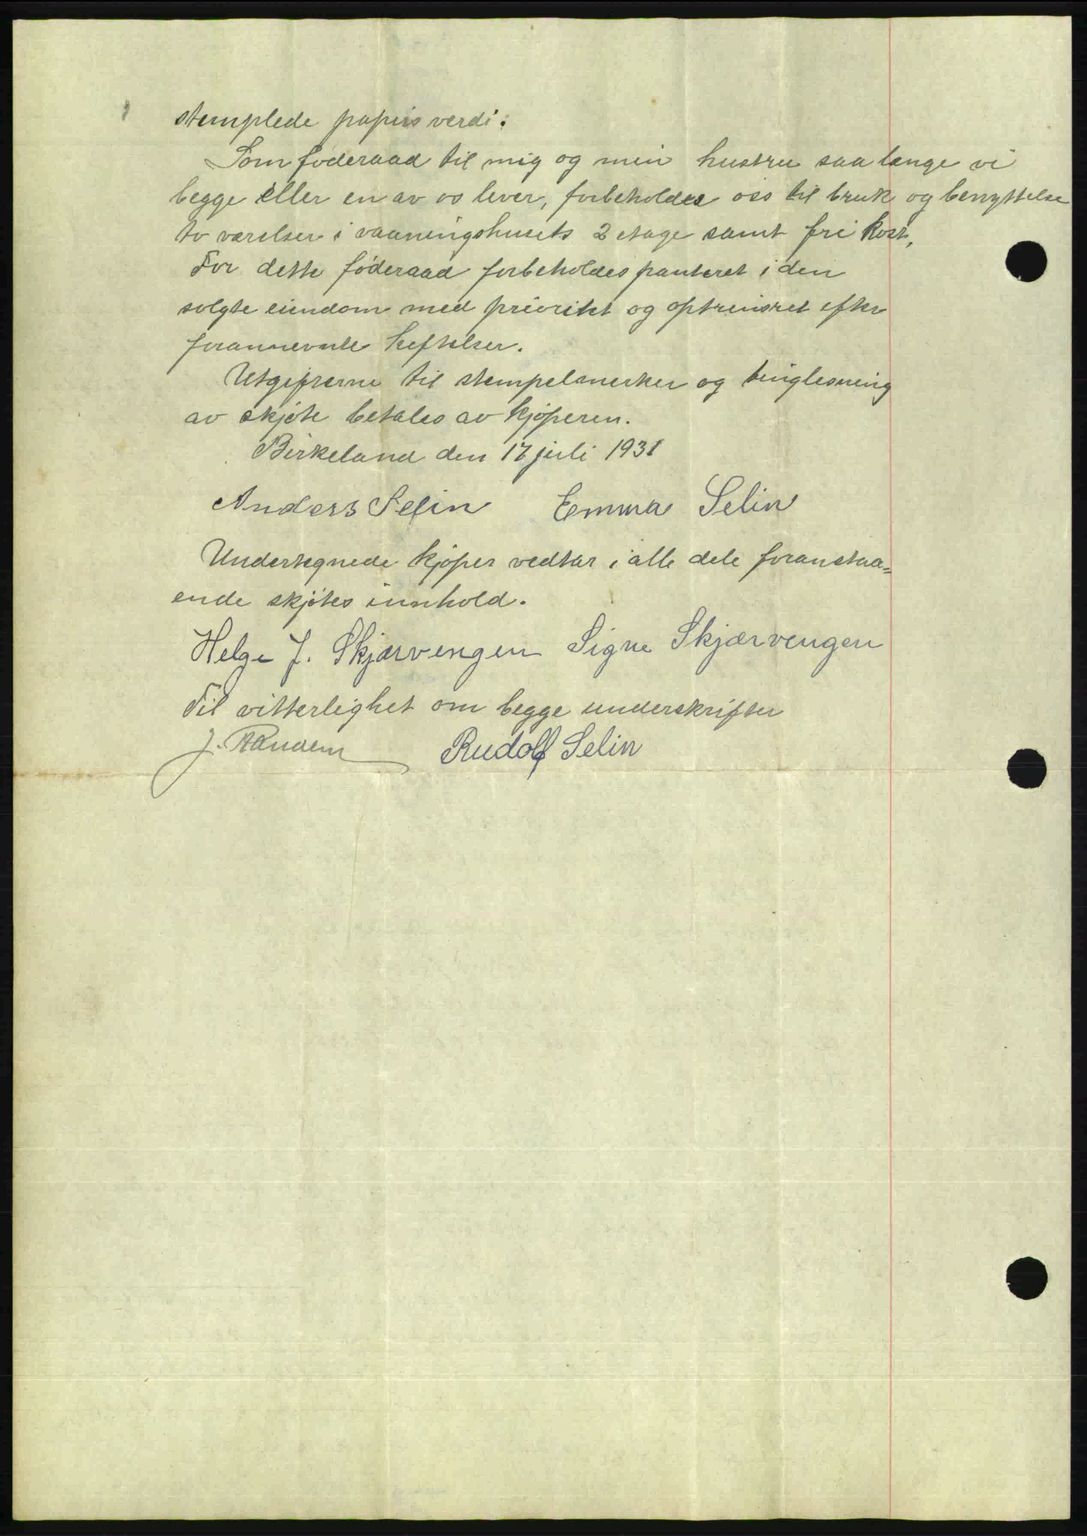 stemplede papirs verdi.
Som föderaad til mig og min hustru saa længe vi
begge eller en av os lever, forbeholdes oss til bruk og benyttelse
to værelser i vaaningshusets 2 etage samt fri kost,
For dette föderaad forbeholdes panteret i den
solgte eiendom med prioritet og optrinsret efter
forannevnte heftelser.
Utgifterne til stempelmerker og tinglesning
av skjöte betales av kjöperen.
Birkeland den 17 juli 1931
Anders Selin Emma Selin
Undertegnede kjöper vedtar i alle dele foranstaa-
ende skjötes innhold.
Helge J. Skjærvengen Signe Skjærvengen
Til vitterlighet om begge underskrifter
J. Rudolf Selin